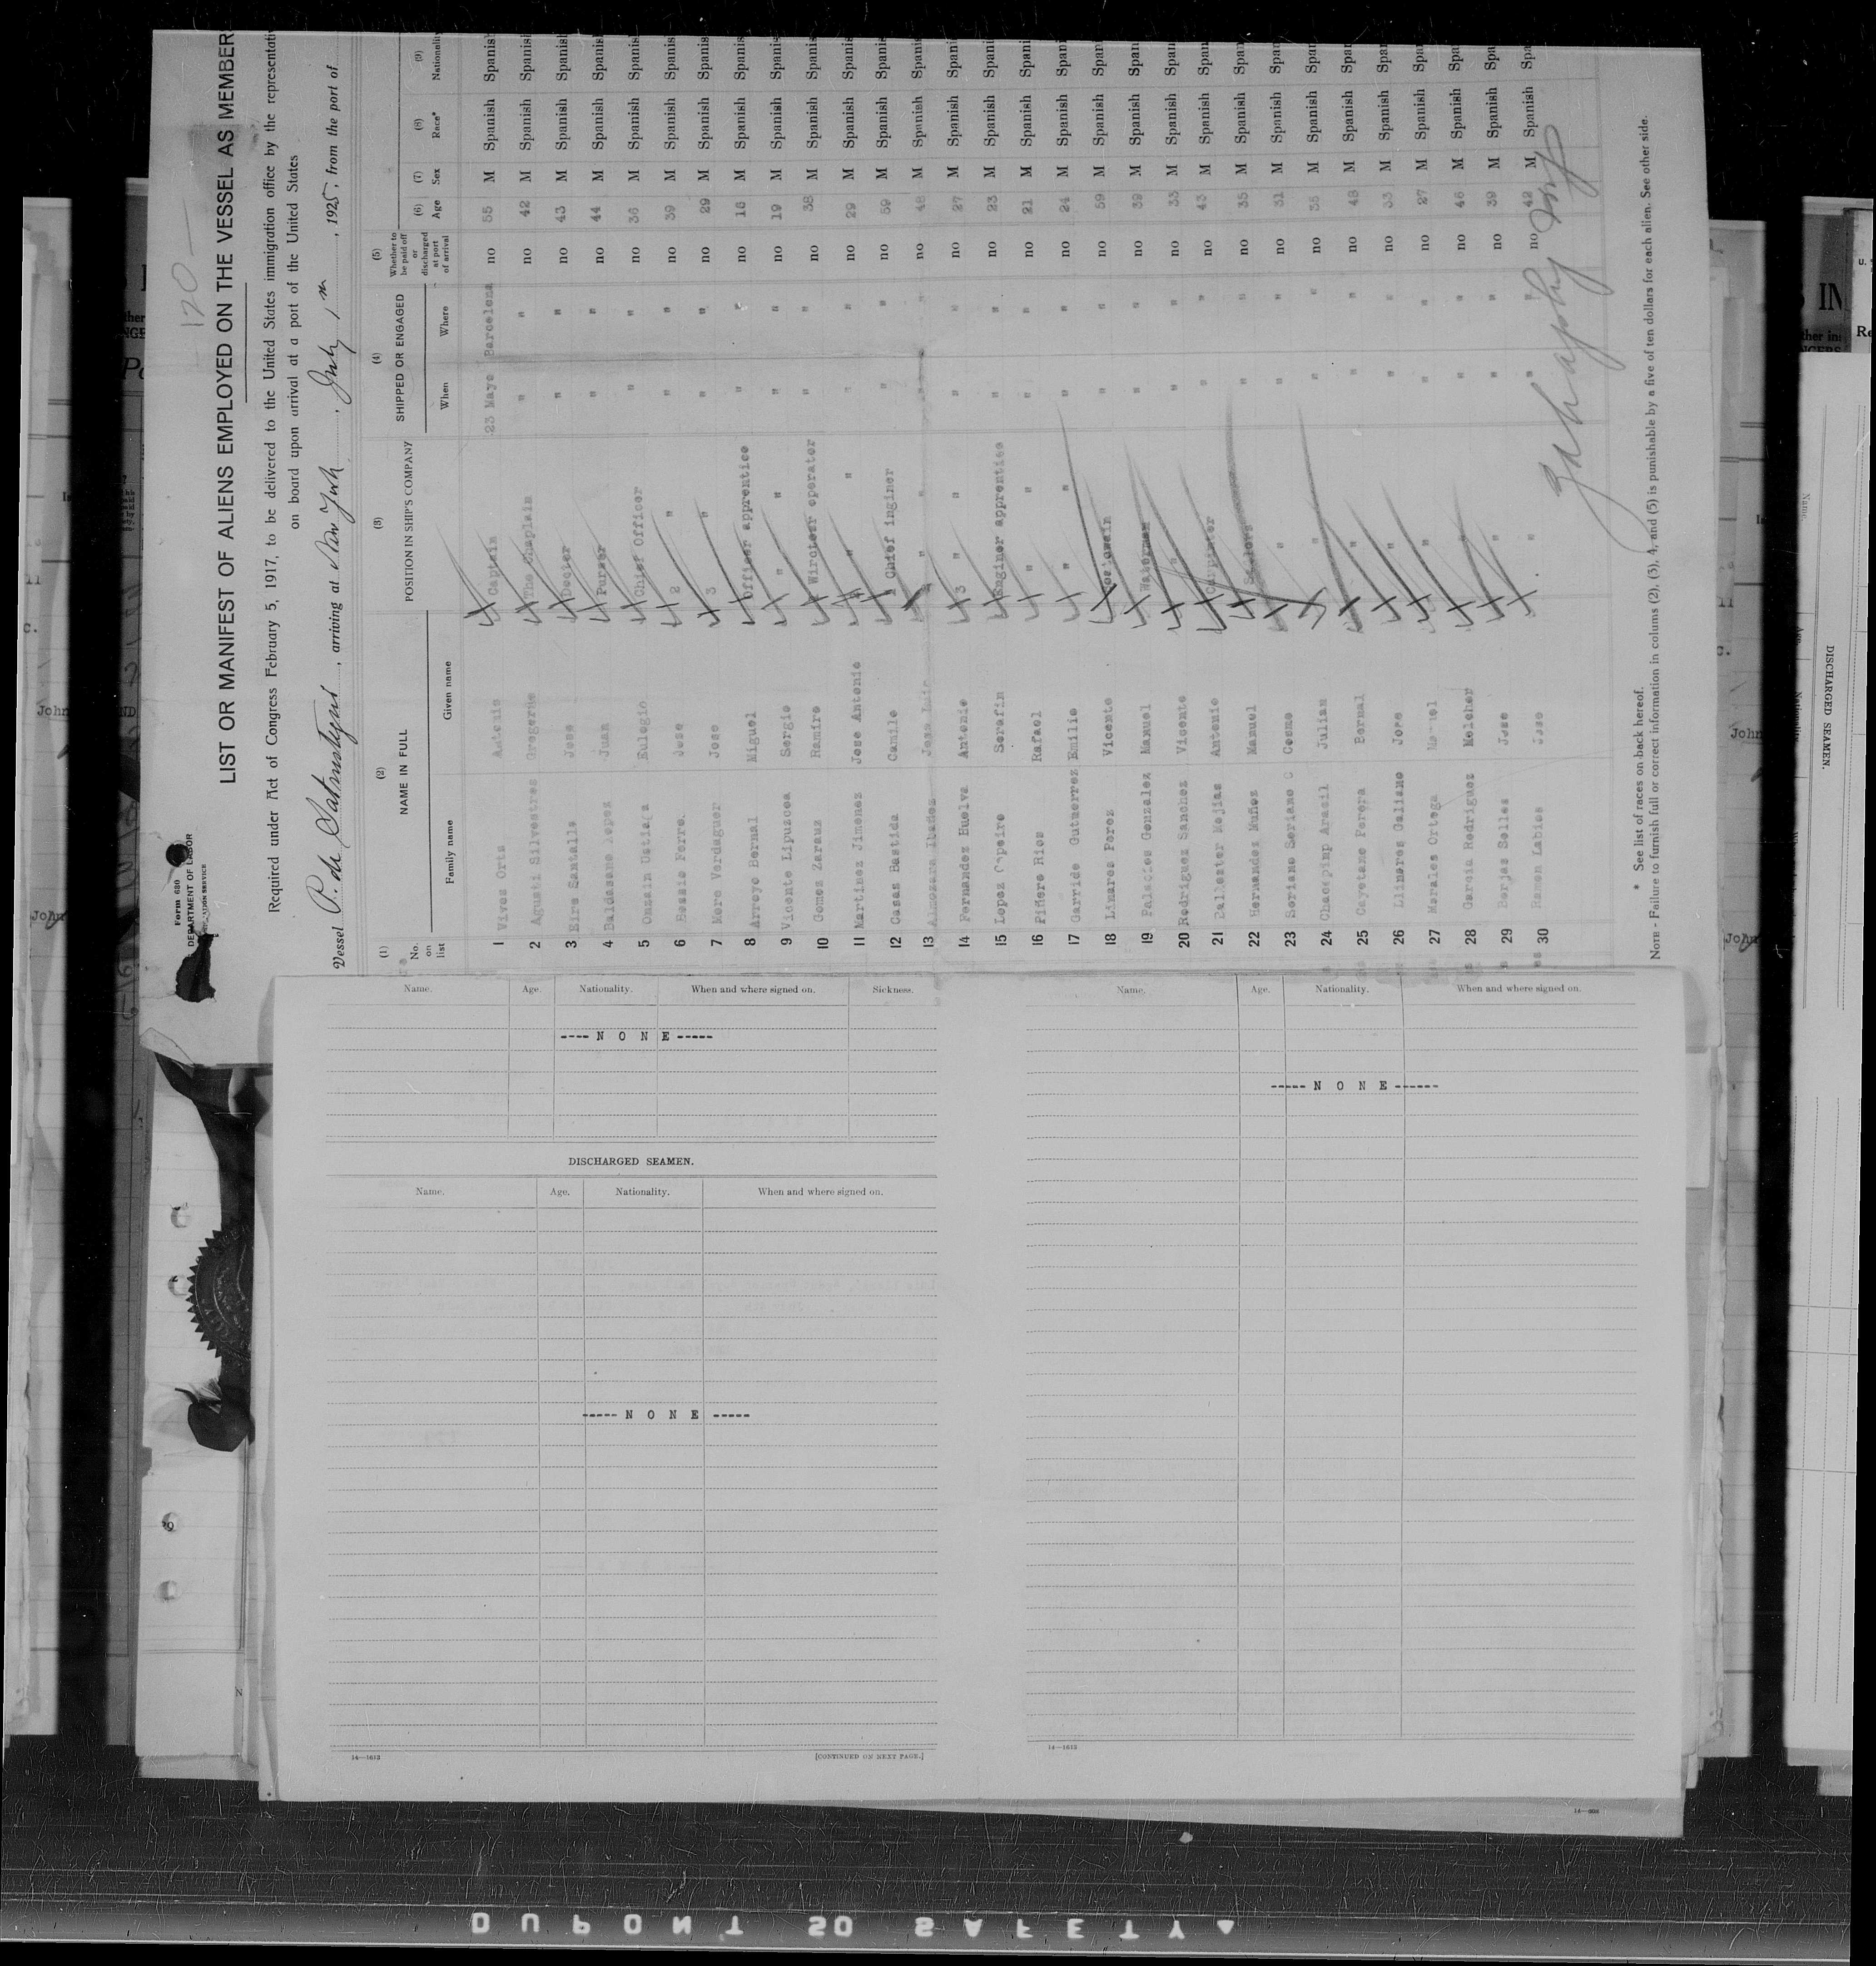 120—
Form 680
DEPARTMENT OF LABOR
LIST OR MANIFEST OF ALIENS EMPLOYED ON THE VESSEL AS MEMBERS
Required under Act of Congress February 5, 1917, to be delivered to the United States immigration office by the representativ
on board upon arrival at a port of the United States
Vessel P. de Satrustegui, arriving at New York, July 1, 1925, from the port of
(1) No. on list (2) NAME IN FULL Family name Given name (3) POSITION IN SHIP'S COMPANY (4) SHIPPED OR ENGAGED When Where (5) Whether to be paid off or discharged at port of arrival (6) Age (7) Sex (8) Race* (9) Nationality
1 Vives Orts Antonio Captain 23 Mayo Barcelona no 55 M Spanish Spanish
2 Agusti Silvestres Gregorio The Chaplain " " no 42 M Spanish Spanish
3 Jose Docter " " no 43 M Spanish Spanish
4 Juan Purser " " no 44 M Spanish Spanish
5 Eulogio Chief Officer " " no 36 M Spanish Spanish
6 Jose 2 " " " no 39 M Spanish Spanis
7 More Verdaguer Jose 3 " " " no 29 M Spanish Spanis
8 Arroyo Bernal Miguel Officer apprentice " " no 18 M Spanish Spanis
9 Vicente Lipuzcoa Sergio " " " " no 19 M Spanish Spanis
10 Gomez Zarauz Ramiro Wireteer operator " " no 38 M Spanish Spanis
11 Martinez Jimenez Jose Antonio " " " " no 29 M Spanish Spanis
12 Casas Bastida Camilo Chief inginer " " no 59 M Spanish Spanis
13 Almozara Ibañez Jose " " " no 48 M Spanish Spani
14 Fernandez Huelva Antonio 3 " " " " no 27 M Spanish Spani
15 Lopez Serafin Enginer apprenties " " no 23 M Spanish Spani
16 Piñero Rios Rafael " " " " no 21 M Spanish Spani
17 Garrido Gutmerrez Emilio " " " " no 24 M Spanish Spani
18 Linares Perez Vicente " " no 59 M Spanish Span
19 Palacios Gonzalez Manuel " " no 39 M Spanish Span
20 Rodriguez Sanchez Vicente " " " no 33 M Spanish Span
21 Ballester Mejias Antonio Carpinter " " no 43 M Spanish Span
22 Hernandez Muñoz Manuel Saylors " " no 35 M Spanish Span
23 Soriano Soriano C Cosme " " " no 31 M Spanish Span
24 Aracil Julian " " " no 35 M Spanish Span
25 Cayetano Perera Bernal " " " no 48 M Spanish Spa
26 Llinares Galiano Jose " " " no 33 M Spanish Spa
27 Morales Ortega Manuel " " " no 27 M Spanish Spa
28 Garcia Rodriguez Melcher " " " no 46 M Spanish Spa
29 Borjas Selles Jose " " " no 39 M Spanish Spa
30 Ramon Labios Jose " " " no 42 M Spanish Spa
* See list of races on back hereof.
NOTE - Failure to furnish full or correct information in colums (2), (3), 4, and (5) is punishable by a five of ten dollars for each alien. See other side.
Name. Age. Nationality. When and where signed on. Sickness.
---- N O N E -----
DISCHARGED SEAMEN.
Name. Age. Nationality. When and where signed on.
----- N O N E -----
14—1613
[CONTINUED ON NEXT PAGE.]
Name. Age. Nationality. When and where signed on.
----- N O N E ------
14—1613
DISCHARGED SEAMEN.
John
John
DUPONT SO SAFETY